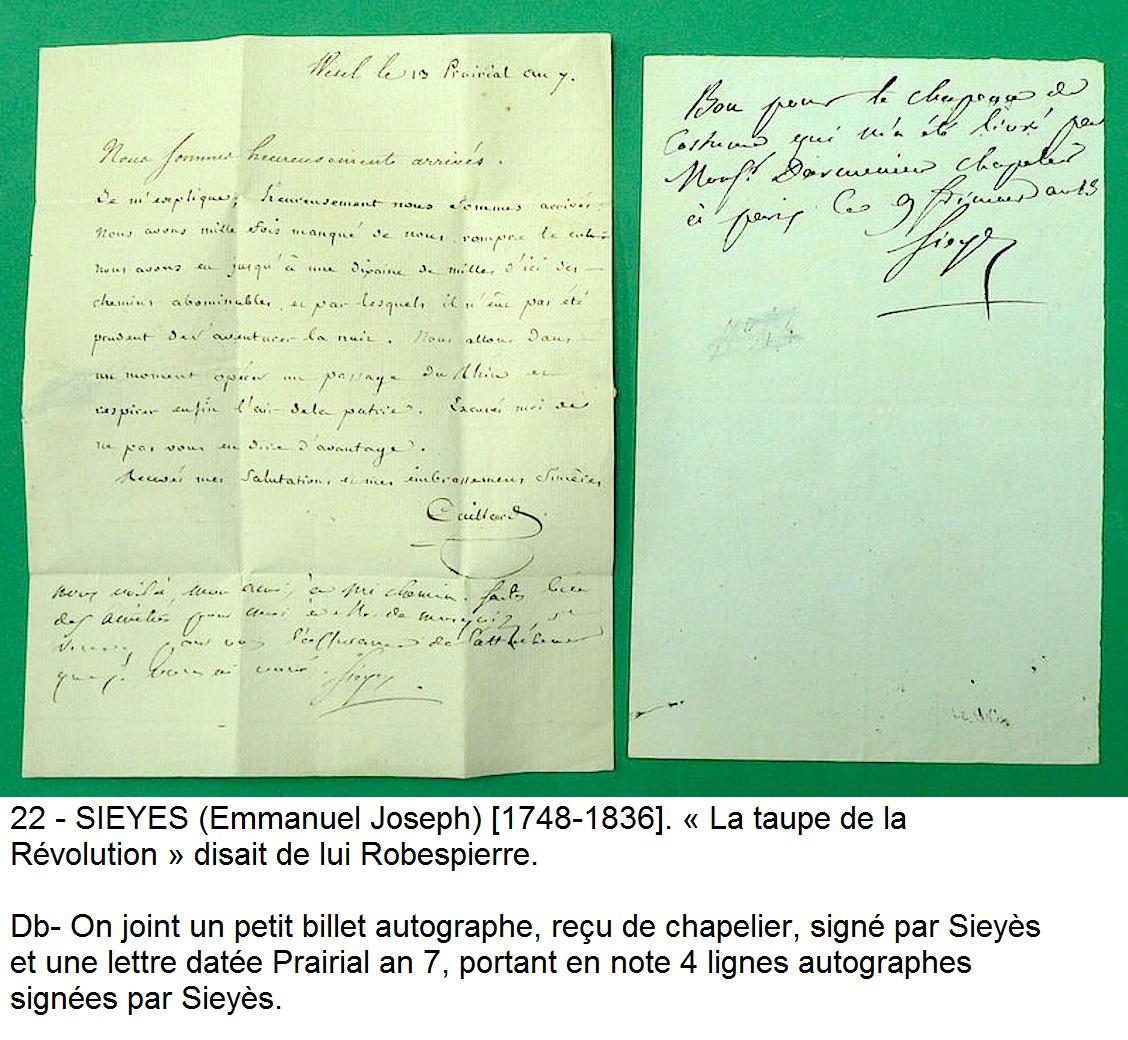 Wesel le 13 Prairial an 7.
Nous sommes heureusement arrivés.
Je m'explique, heureusement nous sommes arrivés.
Nous avons mille fois manqué de nous rompre le
nous avons eu jusqu'à une dixaine de milles d'ici des
chemins abominables et par lesquels il n'eut pas été
prudent de s'aventurer la nuit. Nous allons dans
un moment opérer un passage du Rhin et
respirer enfin l'air de la patrie. Excusés moi de
ne pas vous en dire d'avantage.
Recevés mes salutations et mes embrassemens sincères
Caillard
nous voilà, mon ami, à mi chemin. faites bien
des amitiés pour moi à
pour l'assurance de l'attachement
que je vous ai voué. Sieyes
Bon pour le chapeau de
Costume qui m'a été livré par
Monsr. chapelier
à paris. Ce 9 frimaire an 13
Sieyes
22 - SIEYES (Emmanuel Joseph) [1748-1836]. « La taupe de la
Révolution » disait de lui Robespierre.
Db- On joint un petit billet autographe, reçu de chapelier, signé par Sieyès
et une lettre datée Prairial an 7, portant en note 4 lignes autographes
signées par Sieyès.